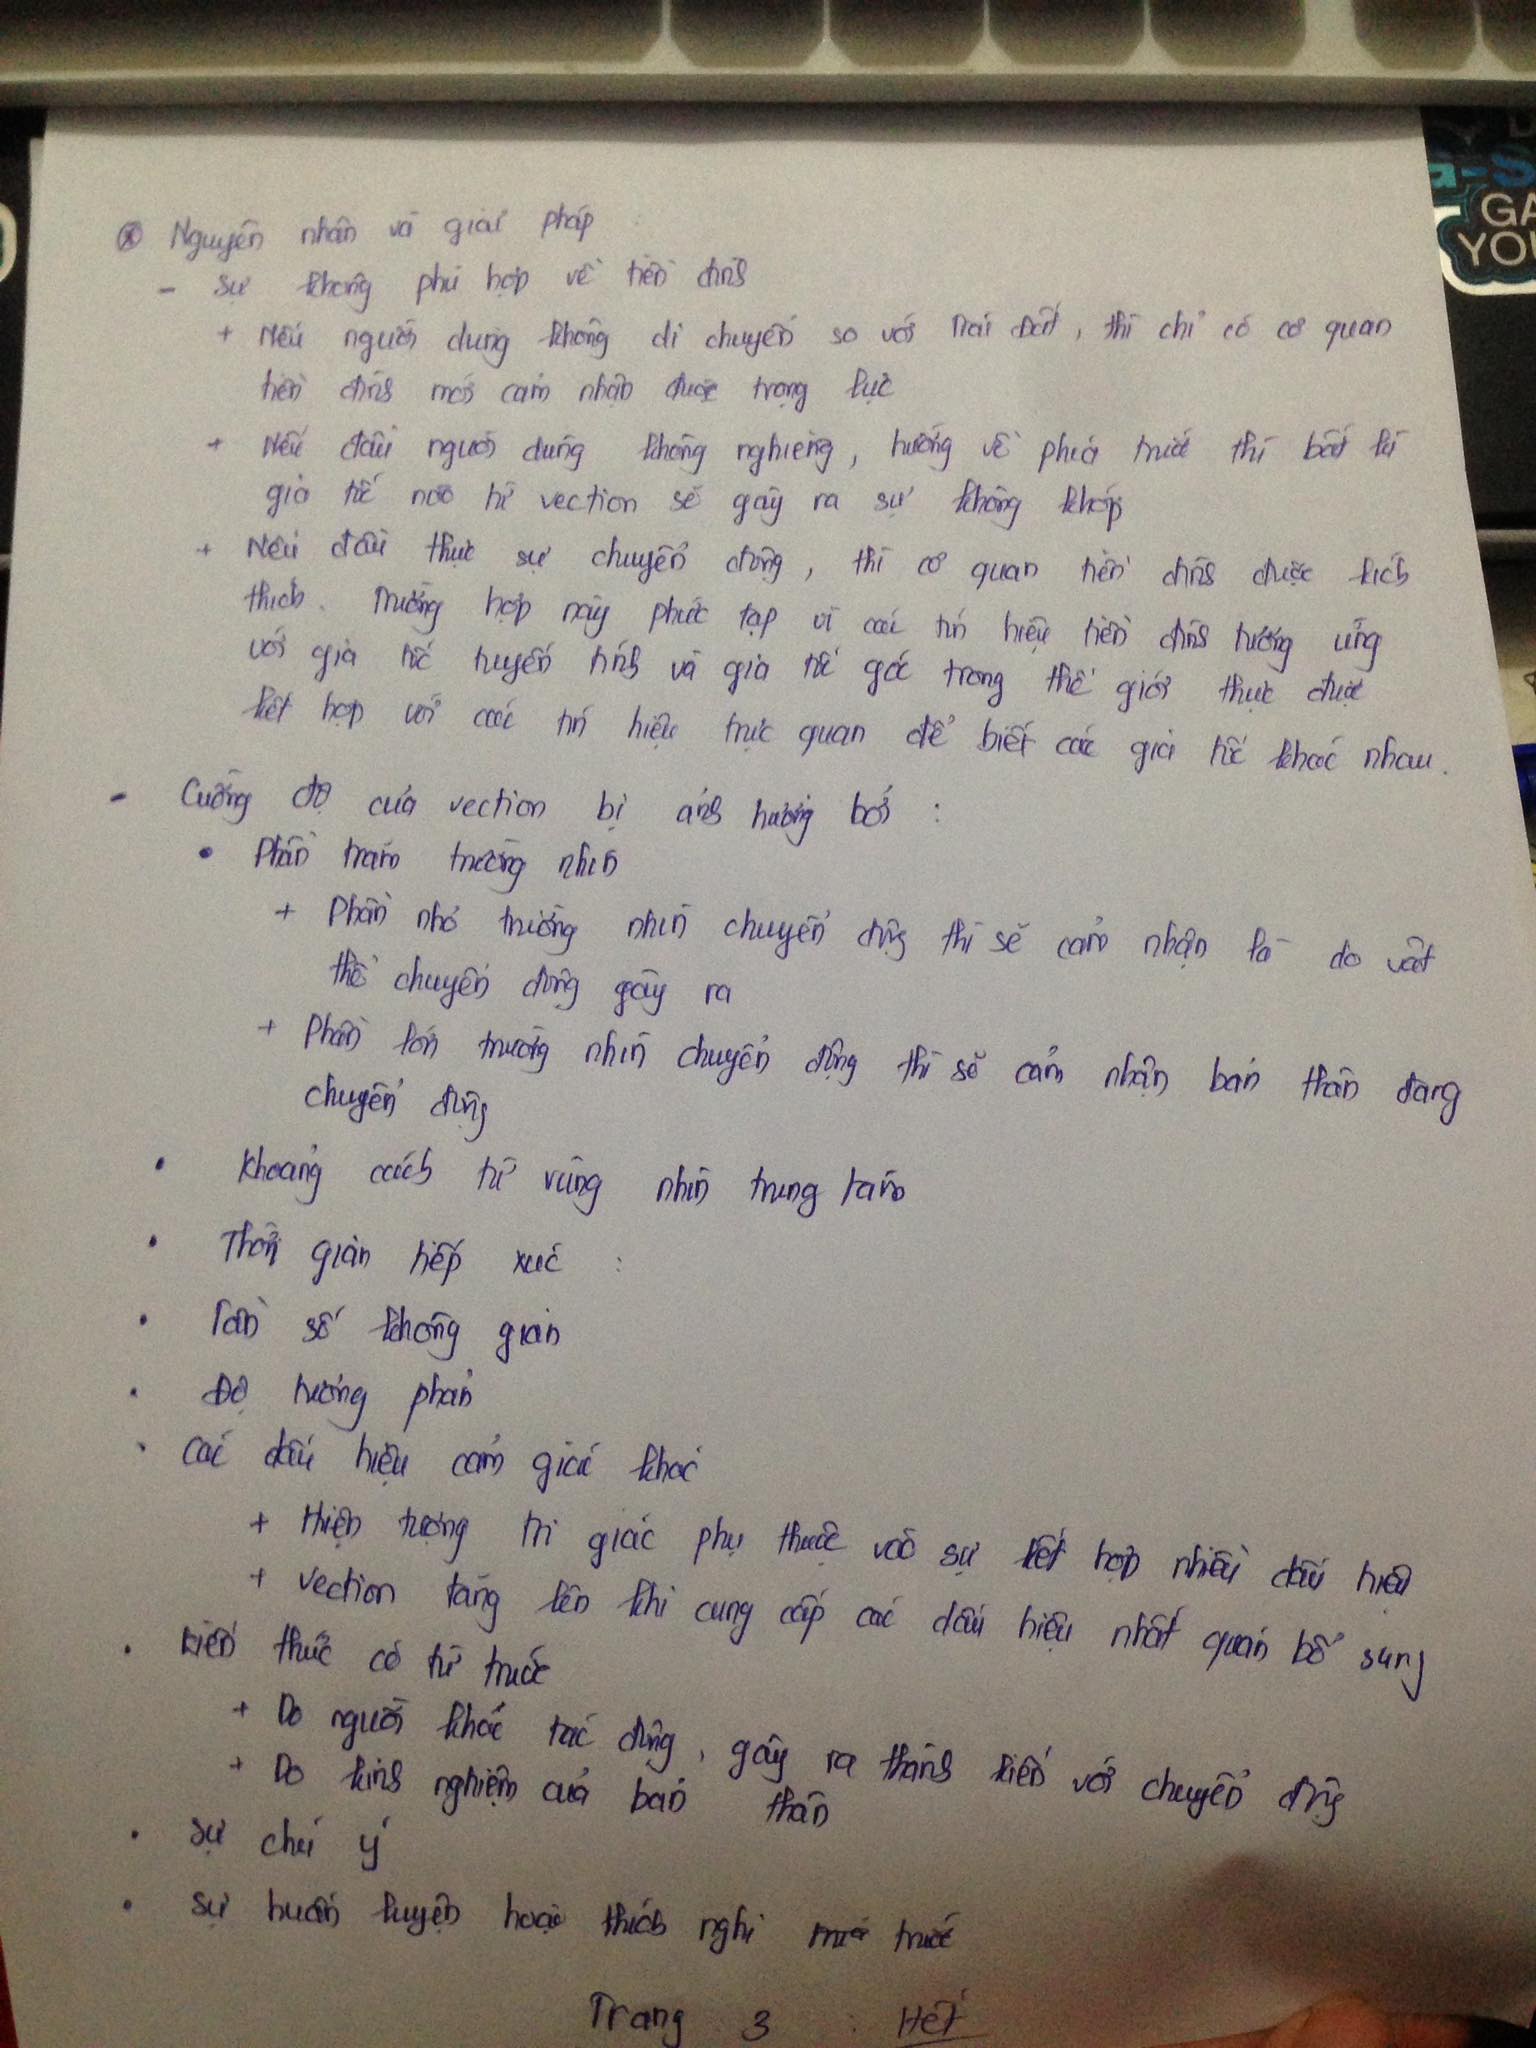 ⊗ Nguyên nhân và giải pháp :
- Sự không phù hợp về tiền đình
+ Nếu người dùng không di chuyển so với Trái Đất, thì chỉ có cơ quan
tiền đình mới cảm nhận được trọng lực
+ Nếu đầu người dùng không nghiêng, hướng về phía trước thì bất kì
gia tốc nào từ vection sẽ gây ra sự không khớp
+ Nếu đầu thực sự chuyển động, thì cơ quan tiền đình được kích
thích. Trường hợp này phức tạp vì các tín hiệu tiền đình tương ứng
với gia tốc tuyến tính và gia tốc góc trong thế giới thực được
kết hợp với các tín hiệu trực quan để biết các gia tốc khác nhau.
- Cường độ của vection bị ảnh hưởng bởi :
• Phần trăm trường nhìn
+ Phần nhỏ trường nhìn chuyển động thì sẽ cảm nhận là do vật
thể chuyển động gây ra
+ Phần lớn trường nhìn chuyển động thì sẽ cảm nhận bản thân đang
chuyển động
• Khoảng cách từ vùng nhìn trung tâm
• Thời gian tiếp xúc :
• Tần số không gian
• Độ tương phản
• Các dấu hiệu cảm giác khác
+ Hiện tượng tri giác phụ thuộc vào sự kết hợp nhiều dấu hiệu
+ Vection tăng lên khi cung cấp các dấu hiệu nhất quán bổ sung
• Kiến thức có từ trước
+ Do người khác tác động, gây ra thành kiến với chuyển động
+ Do kinh nghiệm của bản thân
• Sự chú ý
• Sự huấn luyện hoặc thích nghi trước
Trang 3 : Hết
GA
YOU